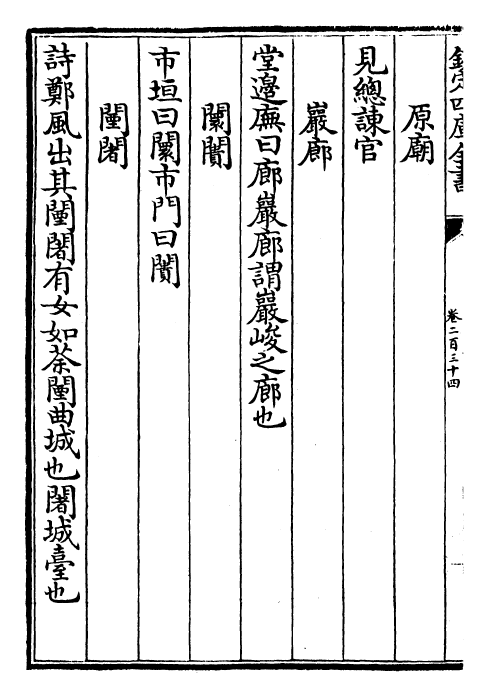 欽定四庫全書
卷二百三十四
原廟
見總諫官
巖廊
堂邊廡曰廊巖廊謂巖峻之廊也
闤闠
市垣曰闤市門曰闠
闉闍
詩鄭風出其闉闍有女如荼闉曲城也闍城臺也